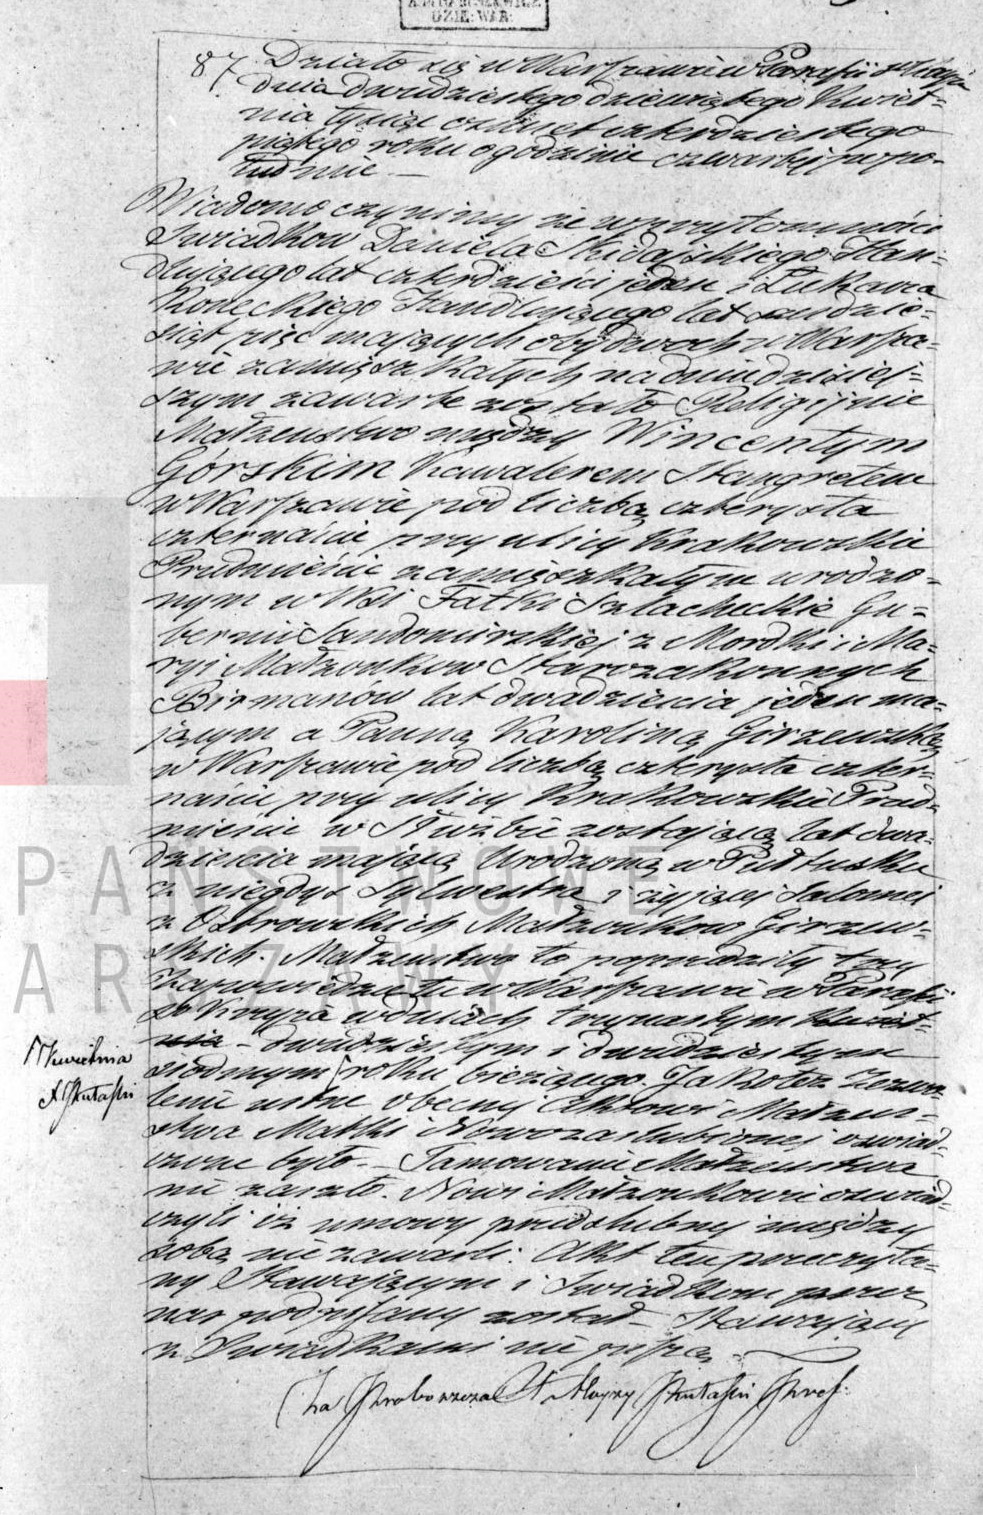 UDZIE: WAR:
87. Działo się w Warszawie w Parafii
dnia dwudziestego dziewiątego Kwiet-
nia tysiąc ośmset czterdziestego
piątego roku o godzinie czwartej po po-
łudniu —
Wiadomo czynimy że w przytomności
Swiadków Daniela Skidajskiego Han-
dlującego lat czterdzieści jeden i Łukasza
Koneckiego Handlującego lat
siąt pięć mających obydwoch w Warsza-
wie zamieszkałych na dniu dzisiej-
szym zawarte zostało Religijnie
Małżenstwo między Wincentym
Górskim Kawalerem Stangretem
w Warszawie pod liczbą czterysta
czternaście przy ulicy Krakowskie
Przedmieście zamieszkałym urodzo-
nym w Wsi Fałki Szlacheckie Gu-
bernii Sandomirskiej z Mordki i Ma-
ryi Małżonkow Starozakonnych
Birmanów lat dwadzieścia jeden ma-
jącym a Panną Karoliną Girzewską
w Warszawie pod liczbą czterysta czter-
naście przy ulicy Krakowskie Przed-
mieście w Służbie zostającą lat dwa-
dzieścia mającą Urodzoną w Pułtusku
z niegdyś Sylwestra i żyjącej Salomei
z Ostrowskich Małżonkow Girzew-
skich. Małżenstwo to poprzedziły trzy
Zapowiedzie tu w Warszawie w Parafii
So Krzyża w dniach trzynastym Kwiet-
nia - dwudziestym i dwudziestym
siódmym roku bieżącego. Jako też Zezwo-
lenie ustne obecnej Aktowi Małżen-
stwa Matki Nowozaślubionej oswiad-
czone było. — Tamowanie Małżenstwa
nie zaszło. Nowi Małżonkowie oswiad-
czyli iż umowy przedslubnej między
sobą nie zawarli. Akt ten przeczyta-
ny Stawającym i Swiadkom przez
nas podpisany został — Stawający
z Swiadkami nie piszą —
Kwietnia
PAŃSTWOWE
ARSZAWY
Za Proboszcza X Aloyzy